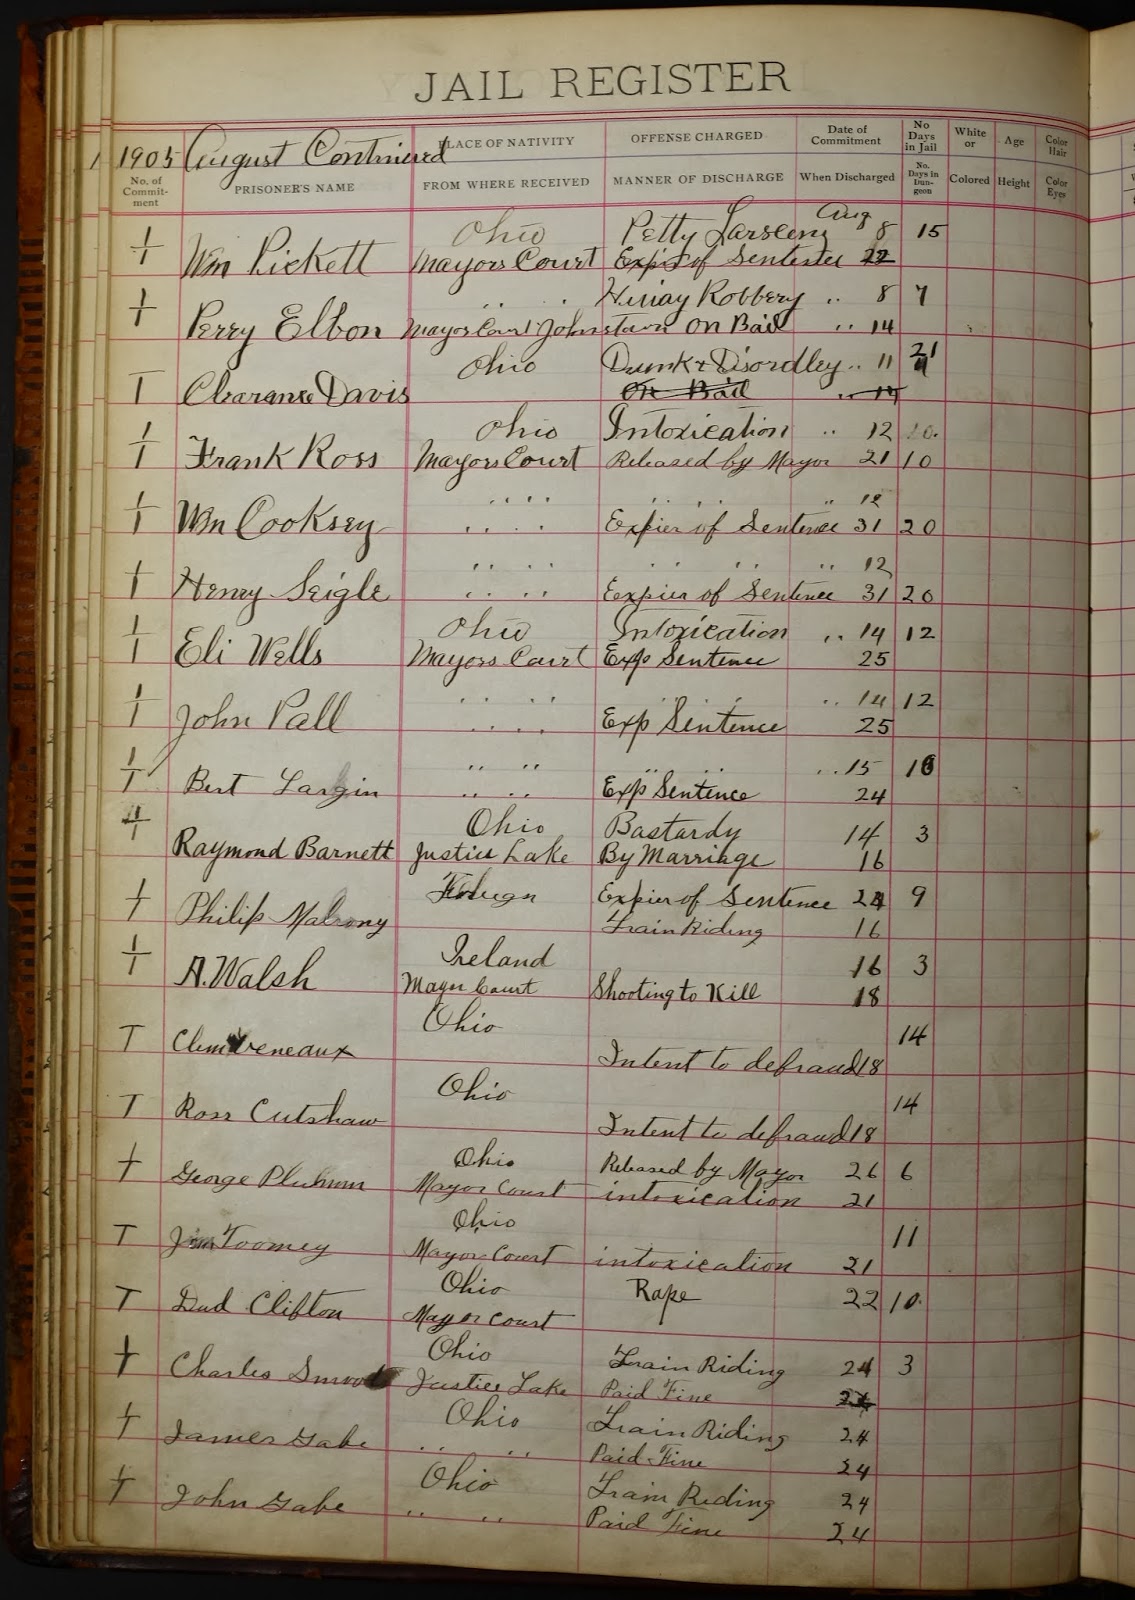 JAIL REGISTER
1905 August Continued
PLACE OF NATIVITY OFFENSE CHARGED Date of Commitment No Days in Jail White or Age Color Hair
No. of Commit-ment PRISONER'S NAME FROM WHERE RECEIVED MANNER OF DISCHARGE When Discharged No. Days in Dun-geon Colored Height Color Eyes
1 Ohio Petty Larseeny Aug 8 15
1 Wm Pickett Mayors Court Expir of Sentence 22
1 " " Robbery " 8 7
1 Perry Elbon Mayor Court Johnstown on Bail " 14
Ohio Drunk & Disordley " 11 21
1 Clearance Davis On Bail " 14
1 Ohio Intoxication " 12 10.
1 Frank Ross Mayors Court Released by Mayor 21 10
1 " " " " " " " 12
1 Wm Cooksey " " " Expier of Sentence 31 20
1 " " " " " " " " 12
1 Henry Seigle " " " " Eexpier of Sentence 31 20
1 Ohio Intoxication " 14 12
1 Eli Wells Mayors Court Exp Sentence 25
1 " " " " " " " " 14 12
1 John Pall " " " Exp Sentence 25
1 " " " " " 15 10
1 Bert Largin " " Exp Sentence 24
1 Ohio Bastardy 14 3
1 Raymond Barnett Justice Lake By Marriage 16
1 Expier of Sentence 24 9
1 Philip Train Riding 16
1 Ireland 16 3
1 A. Walsh Mayor Court Shooting to Kill 18
Ohio 14
1 Clem Intent to defraud 18
Ohio 14
1 Ross Cutshaw Intent to defraud 18
1 Ohio Released by Mayor 26 6
1 George Mayor Court intoxication 21
Ohio 11
1 Jim Toomey Mayor Court intoxication 21
Ohio Rape 22 10.
1 Dud Clifton Mayor court
1 Ohio Train Riding 24 3
1 Charles Smoot Justice Lake Paid Fine
1 Ohio Train Riding 24
1 James Gabe " " Paid Fine 24
1 Ohio Train Riding 24
1 John Gabe " " Paid Fine 24